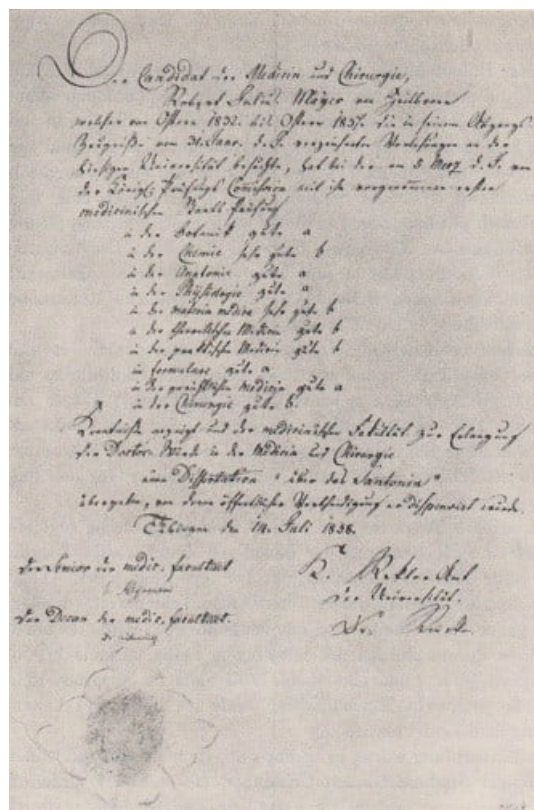 Der Candidat der Medicin und Chirurgie,
Robert Julius Mayer von Heilbronn
welcher von Ostern 1832. bis Ostern 1837. die in seinem Abgangs-
Zeugniße vom 31. Jaar. d. J. verzeichneten Vorlesungen an der
hiesigen Universität besuchte, hat bei der am 5. Merz d. J. von
der Königl. Prüfungs Commission mit ihm vorgenommenen ersten
medicinischen Prüfung
in der Botanik gute a
in der Chemie sehr gute b
in der Anatomie gute a
in der Physiologie gute a
in der materia medica sehr gute b
in der theoretischen Medicin gute b
in der praktischen Medicin gute b
in formulare gute a
in der gerichtlichen Medicin gute a
in der Chirurgie gute b.
Kenntniße erzeigt und der medicinischen Fakultät zur Erlangung
der Doctors Würde in der Medicin und Chirurgie
eine Dissertation "über das Santonin"
übergeben, von deren öffentlicher Vertheidigung er dispensirt wurde.
Tübingen den 14. Juli 1838.
Der Senior der medic. Facultaet
K. Rektor Amt
der Universität.
Der Decan der medic. Facultaet.
Dr.